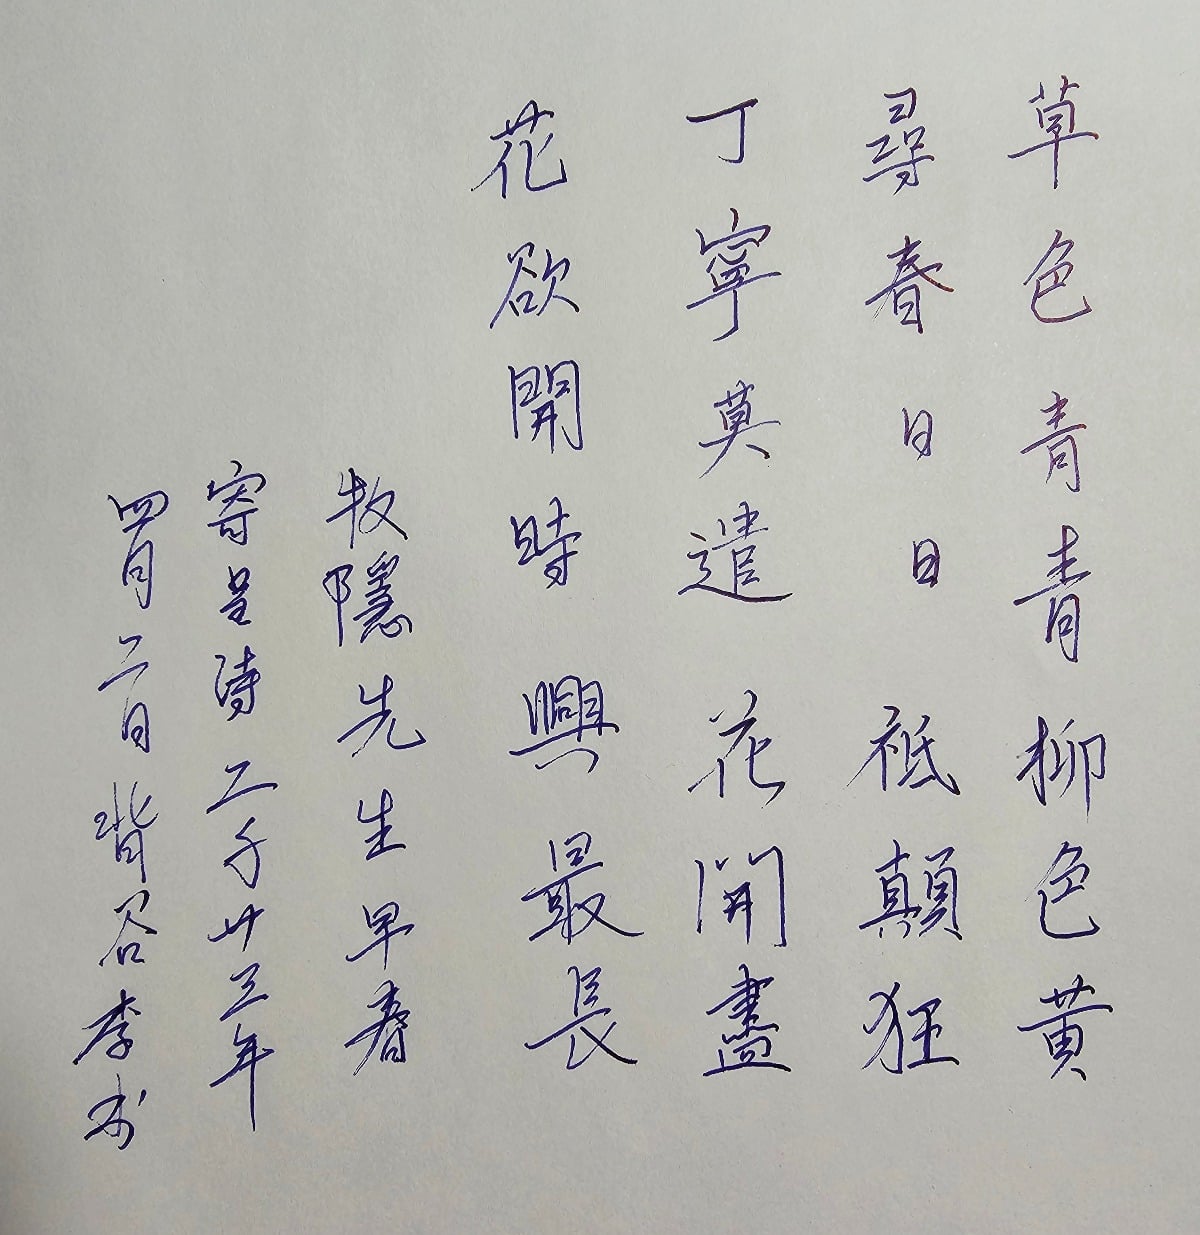 草色青青柳色黄
尋春日日祗顛狂
丁寧莫遣花開盡
花欲開時興最長
牧隱先生早春
寄呈詩二千廿三年
四月二日背谷李书